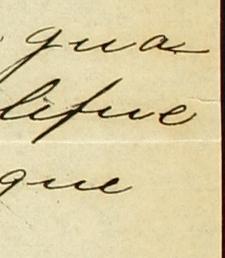 qua
lifue
que